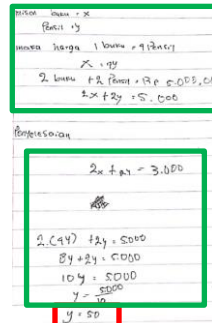 misal buku = x
Pensil = y
maka harga 1 buku = 4 Pensil
x = 4y
2 buku + 2 Pensil = Rp 5.000,00
2x + 2y = 5.000
Penyelesaian
2x + 2y = 3.000
2.(4y) + 2y = 5000
8y + 2y = 5000
10y = 5000
y = 5000
10
y = 50